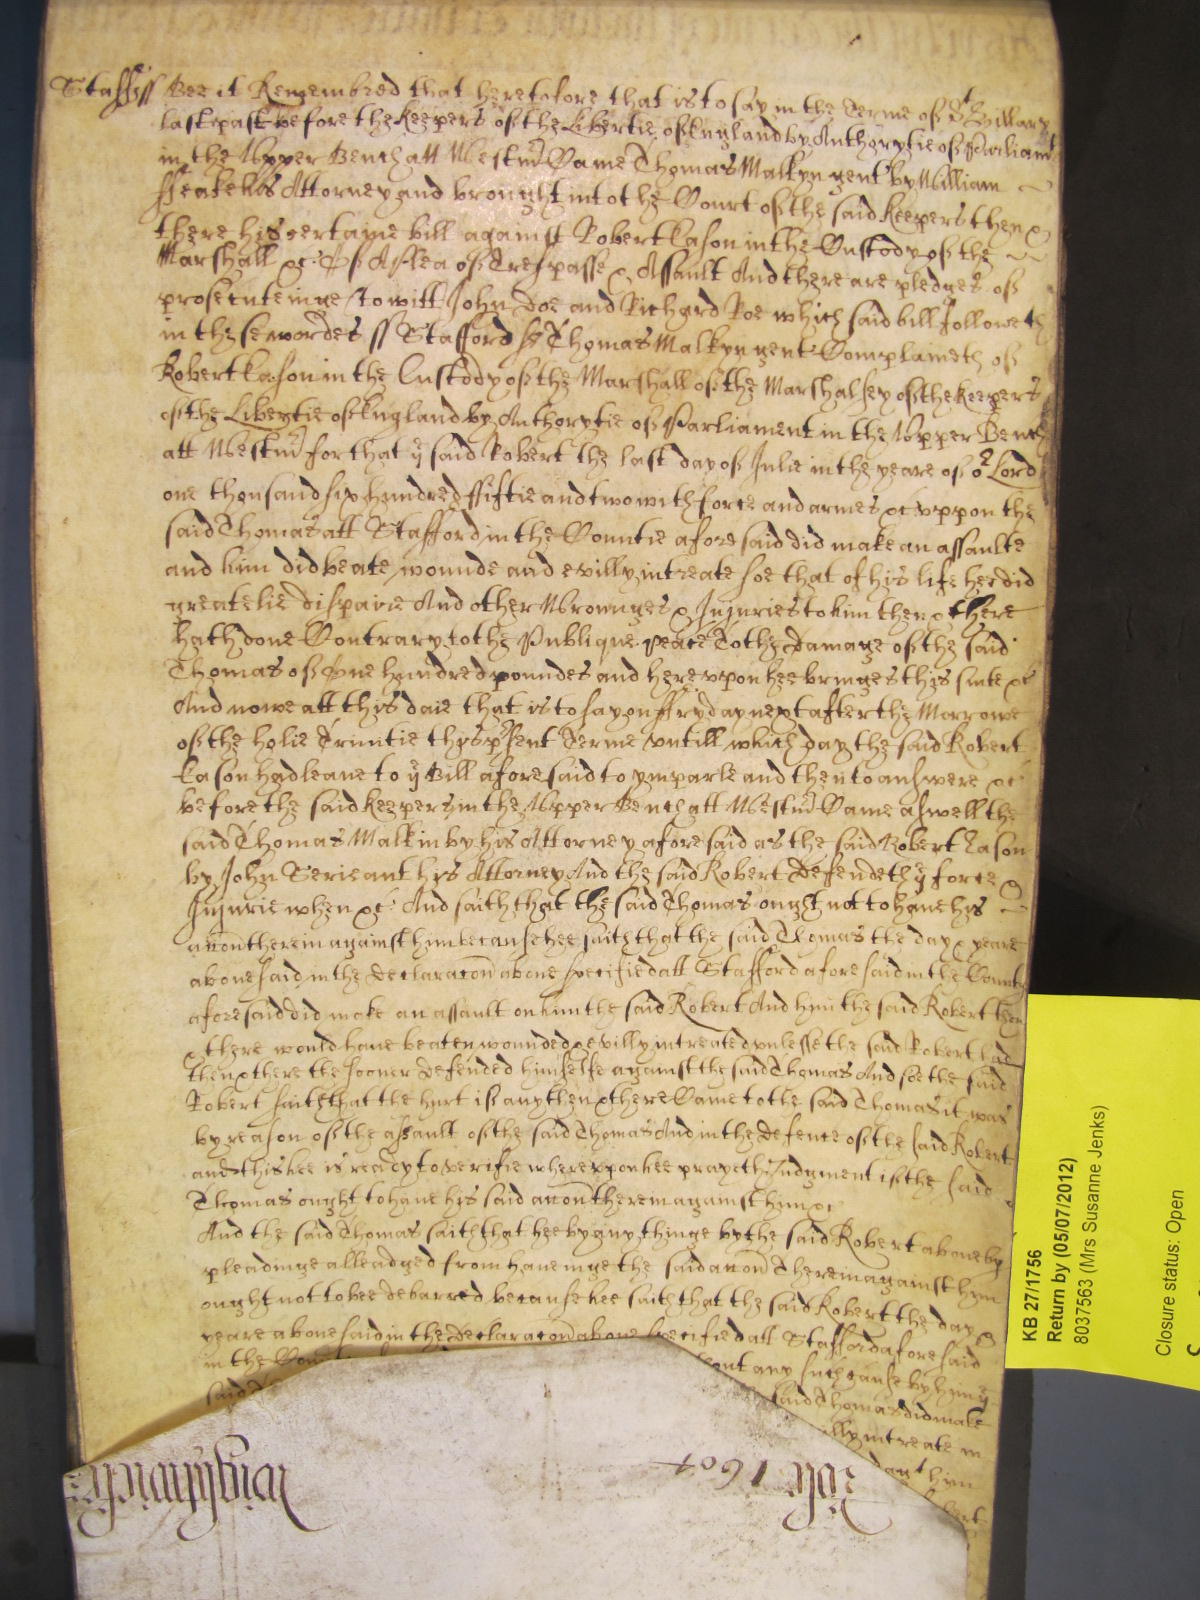 Staff ss Bee it Remembred that heretofore that is to say in the Terme of St Hillary
last past before the Keepers of the Libertie of England by Authorytie of Parliamt
in the Upper Bench att Westmr Came Thomas Malkyn gent by William
his Attorney and brought into the Court of the said Keepers then &
there his certaine bill against Robert Eason in the Custody of the
Marshall &c Of A Plea of Trespasse & Assault And there are pledges of
prosecuteinge to witt John Doe and Richard Roe which said bill followeth
in these wordes ss Stafford ss Thomas Malkyn gent Complaineth of
Robert Eason in the Custody of the Marshall of the Marshalsey of the Keepers
of the Libertie of England by Authorytie of Parliament in the Upper Bench
att Westmr for that ye said Robert the last day of Julie in the yeare of or Lord
one thousand six hundred ffiftie and two with force and armes &c uppon the
said Thomas att Stafford in the Countie aforesaid did make an assaulte
and him did beate wounde and evilly intreate soe that of his life hee did
greatelie dispaire And other Wronges & Injuries to him then & there
hath done Contrary to the Publique peace To the Damage of the said
Thomas of One hundred poundes and hereuppon hee bringes this suite &c
And nowe att this daie that is to say on ffryday next after the Morrowe
of the holie Trinitie this psent Terme untill which day the said Robert
Eason had leave to ye Bill aforesaid to imparle and then to answere &c
before the said Keepers in the Upper Bench att Westmr Came aswell the
said Thomas Malkin by his Attorney aforesaid as the said Robert Eason
by John Serieant his Attorney And the said Robert Defendeth ye force &
Injurie when &c And saith that the said Thomas ought not to have his
accon therein against him because hee saith that the said Thomas the day & yeare
abovesaid in the Declaracon above specified att Stafford aforesaid in the County
aforesaid did make an assault on him the said Robert And him the said Robert then
& there would have beaten wounded & evilly intreated unlesse the said Robert had
then & there the sooner defended himselfe against the said Thomas And soe the said
Robert saith that the hurt if any then & there Came to the said Thomas it was
by reason of the assault of the said Thomas And in the defence of the said Robert
and this hee is ready to verifie whereuppon hee prayeth Judgment if the said
Thomas ought to have his said accon therein against him &c
And the said Thomas saith that hee by any thinge by the said Robert above by
pleadinge alleadged from haveinge the said accon therein against him
ought not to bee debarred because hee saith that the said Robert the day &
yeare abovesaid in the Declaracon above specified att Stafford aforesaid
in the any such cause by him ye
said said Thomas did make
intreate in
him
KB 27/1756
Return by (05/07/2012)
8037563 (Mrs Susanne Jenks)
Closure status: Open
Rolle 1604